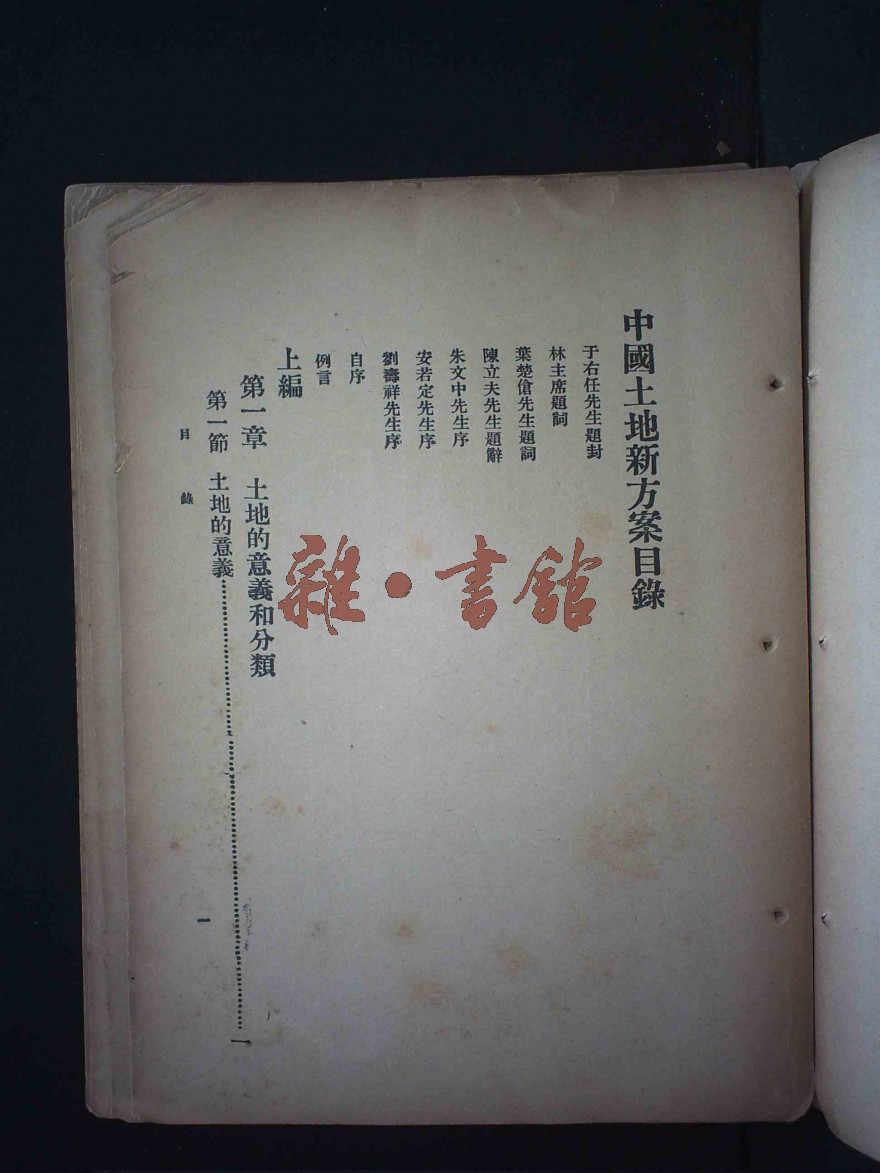 中國土地新方案目錄
于右任先生題封
林主席題詞
葉楚傖先生題詞
陳立夫先生題辭
朱文中先生序
安若定先生序
劉壽祥先生序
自序
例言
上編
第一章 土地的意義和分類
第一節 土地的意義……………………一
目錄 一
雜·書館